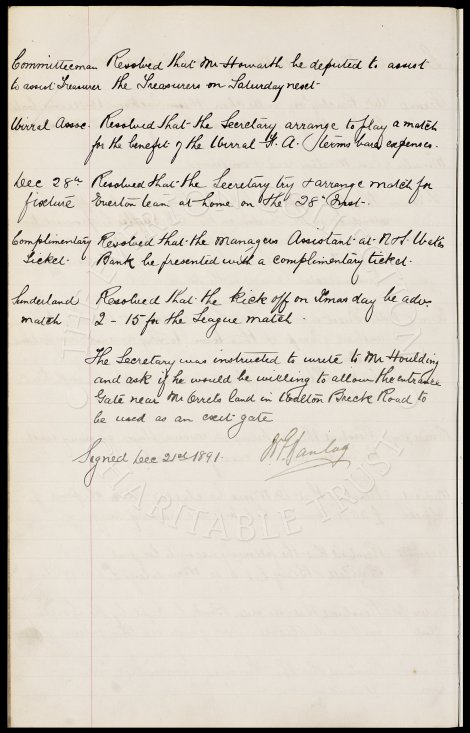 Committeeman Resolved that Mr Howarth be deputed to assist
to assist Treasurer the Treasurers on Saturday next
Wirral Assoc. Resolved that the Secretary arrange to play a match
for the benefit of the Wirral F. A. terms bare expenses.
Dec 28th Resolved that the Secretary try & arrange match for
fixture Everton team at home on the 28th Inst.
Complimentary Resolved that the Managers Assistant at N & S. Wales
Ticket. Bank be presented with a complimentary ticket.
Sunderland Resolved that the kick off on Xmas day be adv.
match 2-15 for the League match.
The Secretary was instructed to write to Mr Houlding
and ask if he would be willing to allow the entrance
Gate near Mr Orrels land in Walton Breck Road to
be used as an exit gate
Signed Dec 21st 1891.
CHARITABLE TRUST